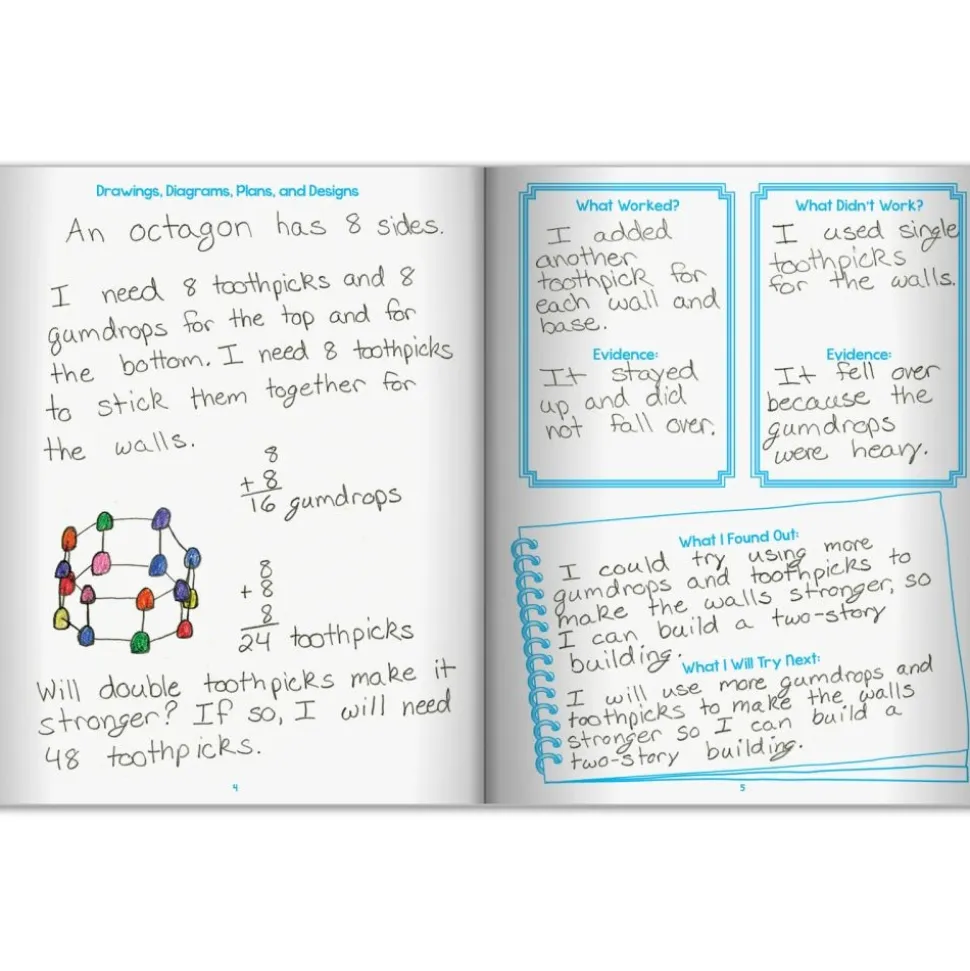 Drawings, Diagrams, Plans, and Designs
An octagon has 8 sides.
I need 8 toothpicks and 8
gumdrops for the top and for
the bottom. I need 8 toothpicks
to stick them together for
the walls.
8
+ 8
16 gumdrops
8
+ 8
8
24 toothpicks
Will double toothpicks make it
stronger? If so, I will need
48 toothpicks.
4
What Worked?
I added
another
toothpick for
each wall and
base.
Evidence:
It stayed
up and did
not fall over.
What Didn't Work?
I used single
toothpicks
for the walls.
Evidence:
It fell over
because the
gumdrops
were heavy.
What I Found Out:
I could try using more
gumdrops and toothpicks to
make the walls stronger, so
I can build a two-story
building.
What I Will Try Next:
I will use more gumdrops and
toothpicks to make the walls
stronger so I can build a
two-story building.
5